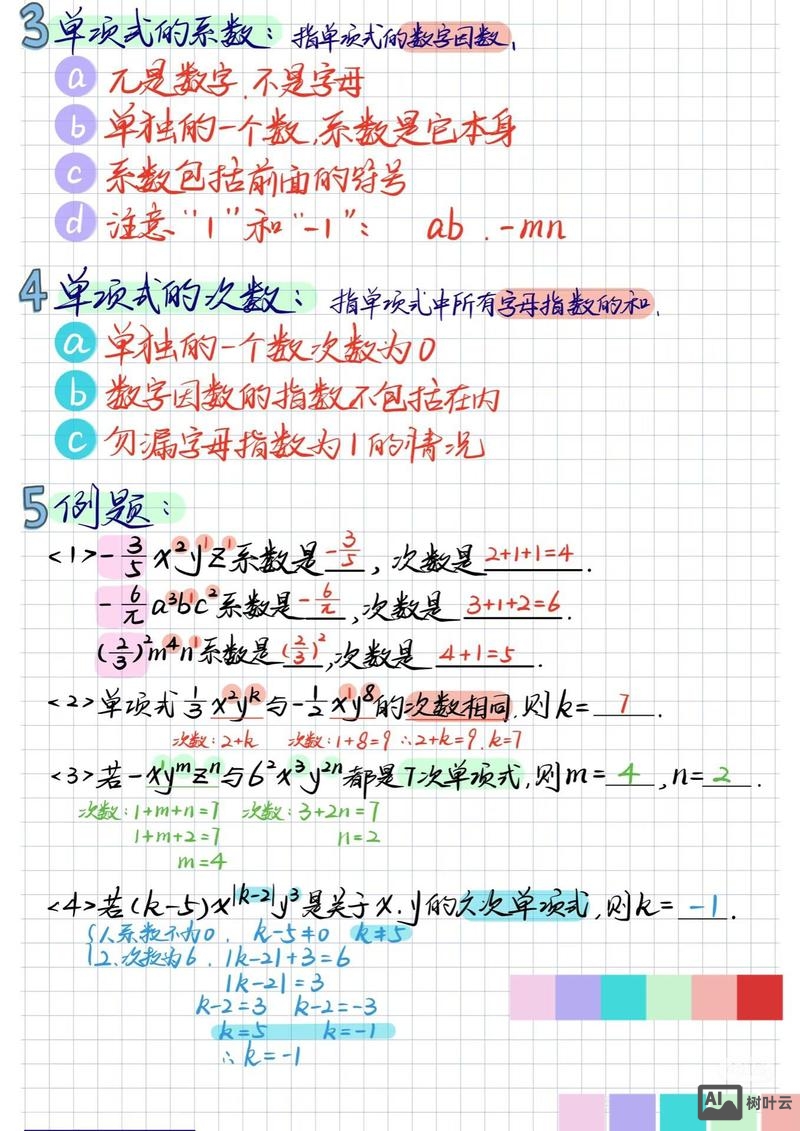 3 单项式的系数：指单项式的数字因数.
a π是数字.不是字母
b 单独的一个数,系数是它本身
c 系数包括前面的符号
d 注意“1”和“-1”： ab . -mn
4 单项式的次数：指单项式中所有字母指数的和.
a 单独的一个数次数为0
b 数字因数的指数不包括在内
c 勿漏字母指数为1的情况
5 例题：
<1> -3/5 x²y¹z¹系数是 -3/5 , 次数是 2+1+1=4 .
-6/π a³b¹c²系数是 -6/π , 次数是 3+1+2=6 .
(2/3)²m⁴n¹系数是 (2/3)² , 次数是 4+1=5 .
<2> 单项式 1/3 x²yᵏ 与 -1/2 x¹y⁸ 的次数相同,则k= 7 .
次数：2+k 次数：1+8=9 ∴2+k=9. k=7
<3> 若-x¹yᵐzⁿ与6²x³y²ⁿ都是7次单项式,则m= 4 , n= 2 .
次数：1+m+n=7 次数：3+2n=7
1+m+2=7 n=2
m=4
<4> 若(k-5)x^|k-2|y³是关于x.y的六次单项式,则k= -1 .
{1.系数不为0. k-5≠0 k≠5
2.次数为6. |k-2|+3=6
|k-2|=3
k-2=3 k-2=-3
k=5 k=-1
∴k=-1
AI 树叶云